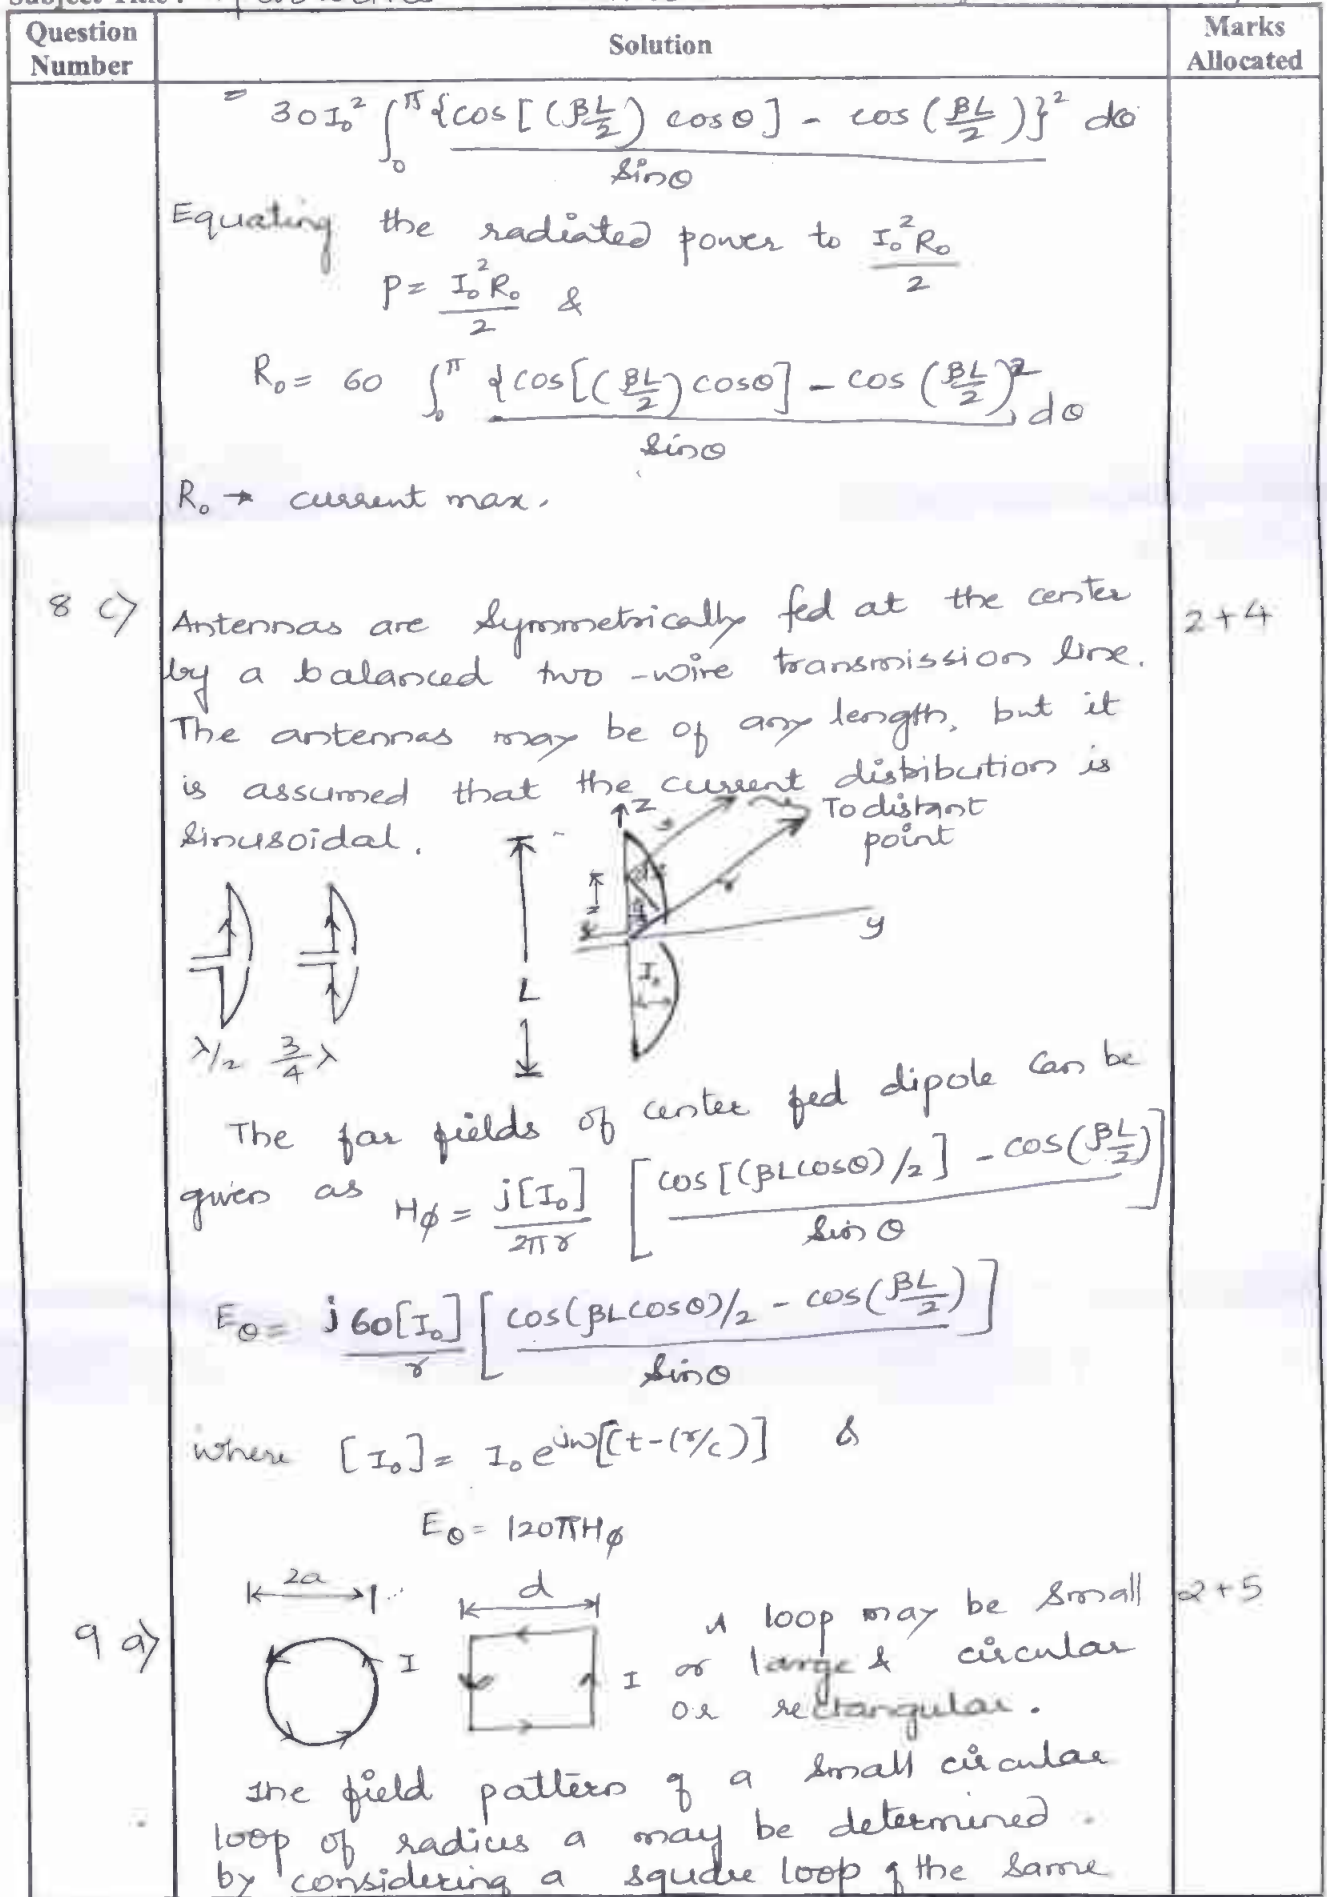 Question Number
Solution
Marks Allocated
= 30I₀² ∫₀^π {cos[(βL/2) cosθ] - cos(βL/2)}² / sinθ dθ
Equating the radiated power to I₀²R₀/2
P = I₀²R₀/2 &
R₀ = 60 ∫₀^π {cos[(βL/2) cosθ] - cos(βL/2)}² / sinθ dθ
R₀ → current max.
8 c)
2+4
Antennas are symmetrically fed at the center
by a balanced two-wire transmission line.
The antennas may be of any length, but it
is assumed that the current distribution is
sinusoidal.
z
To distant
point
r
z
y
I₀
L
λ/2
3/4 λ
The far fields of center fed dipole can be
given as Hϕ = j[I₀]/2πr [cos[(βLcosθ)/2] - cos(βL/2) / sinθ]
Eθ = j60[I₀]/r [cos(βLcosθ)/2 - cos(βL/2) / sinθ]
where [I₀] = I₀ e^jω[t-(r/c)] &
Eθ = 120πHϕ
9 a)
2+5
2a
I
d
I
A loop may be small
or large & circular
or rectangular.
The field pattern of a small circular
loop of radius a may be determined
by considering a square loop of the same